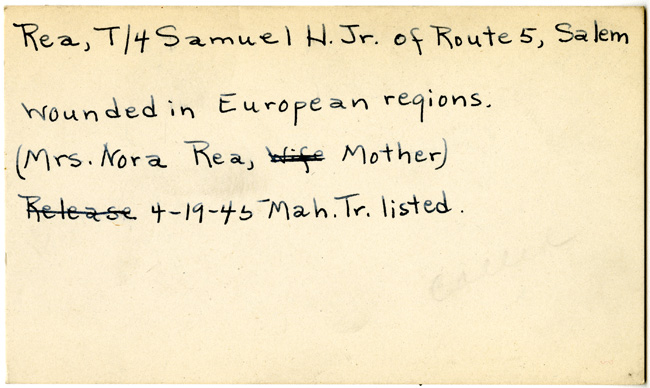 Rea, T/4 Samuel H. Jr. of Route 5, Salem
wounded in European regions.
(Mrs. Nora Rea, Wife Mother)
Release 4-19-45 Mah. Tr. listed.
Called